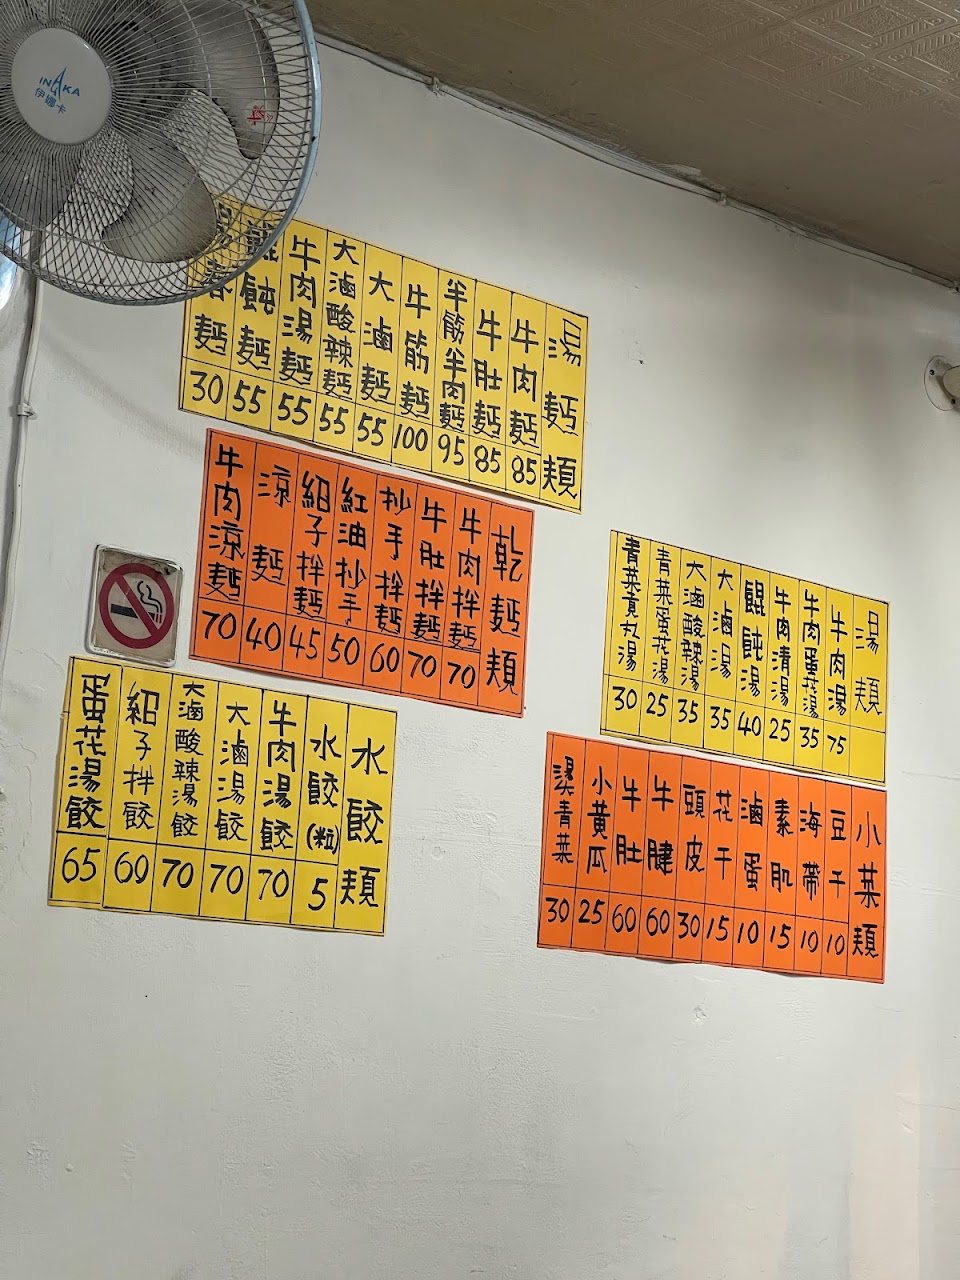 INAKA
伊娜卡
湯麵類
牛肉麵 85
牛肚麵 85
半筋半肉麵 95
牛筋麵 100
大滷麵 55
大滷酸辣麵 55
牛肉湯麵 55
餛飩麵 55
春麵 30
乾麵類
牛肉拌麵 70
牛肚拌麵 70
抄手拌麵 60
紅油抄手 50
紹子拌麵 45
涼麵 40
牛肉涼麵 70
湯類
牛肉湯 75
牛肉蛋花湯 35
牛肉清湯 25
餛飩湯 40
大滷湯 35
大滷酸辣湯 35
青菜蛋花湯 25
青菜貢丸湯 30
水餃類
水餃(粒) 5
牛肉湯餃 70
大滷湯餃 70
大滷酸辣湯餃 70
紹子拌餃 60
蛋花湯餃 65
小菜類
豆干 10
海帶 10
素肌 15
滷蛋 10
花干 15
頭皮 30
牛腱 60
牛肚 60
小黃瓜 25
燙青菜 30